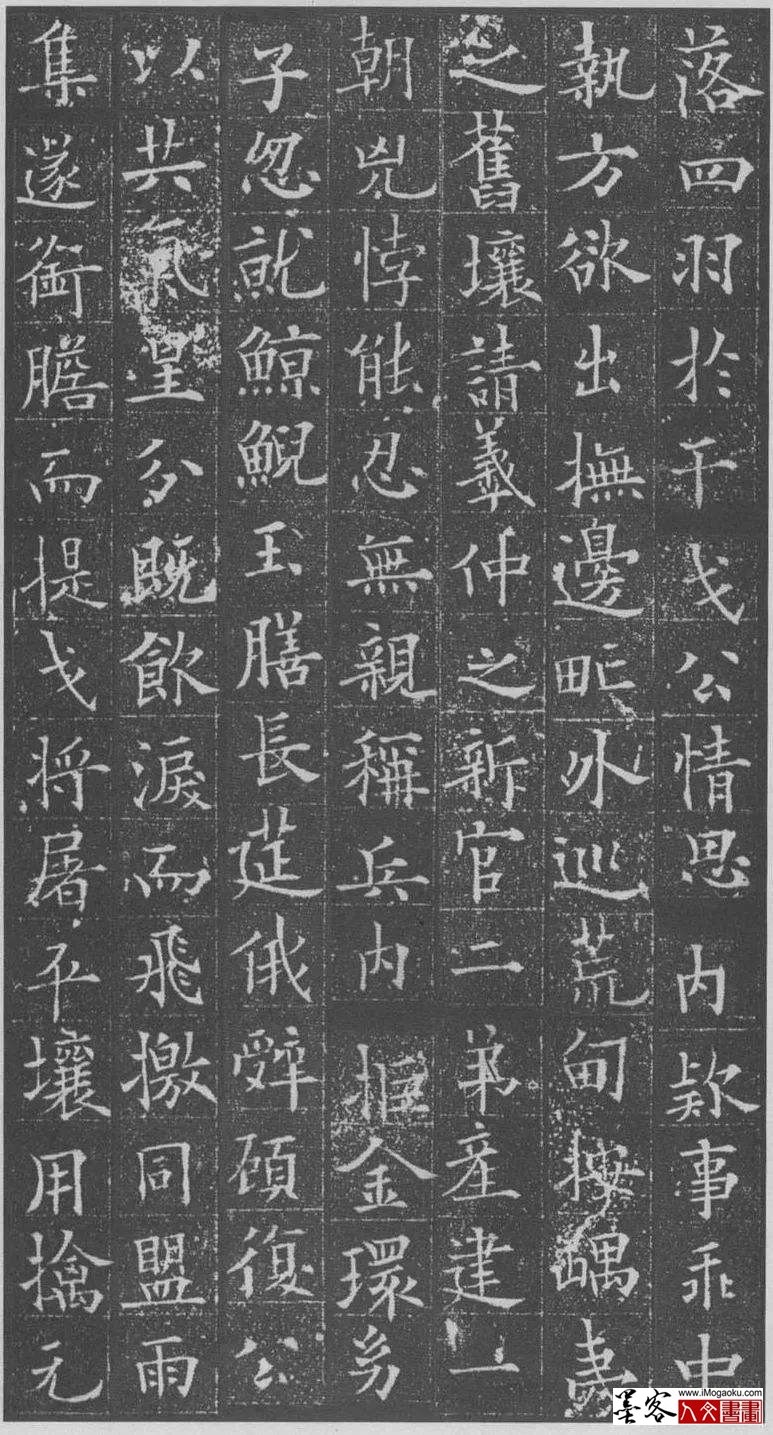 落四羽於干戈公情思内欵事乖中
執方欲出撫邊甿外巡荒甸按嵎夷
之舊壤請羲仲之新官二弟產建一
朝兇悖能忍無親稱兵内拒金環幼
子忽就鯨鯢玉膳長筵俄辭顧復公
以共氣星分既飲淚而飛檄同盟雨
集遂銜膽而提戈將屠平壤用擒元
墨客
www.iMogaoku.com
人文書畫